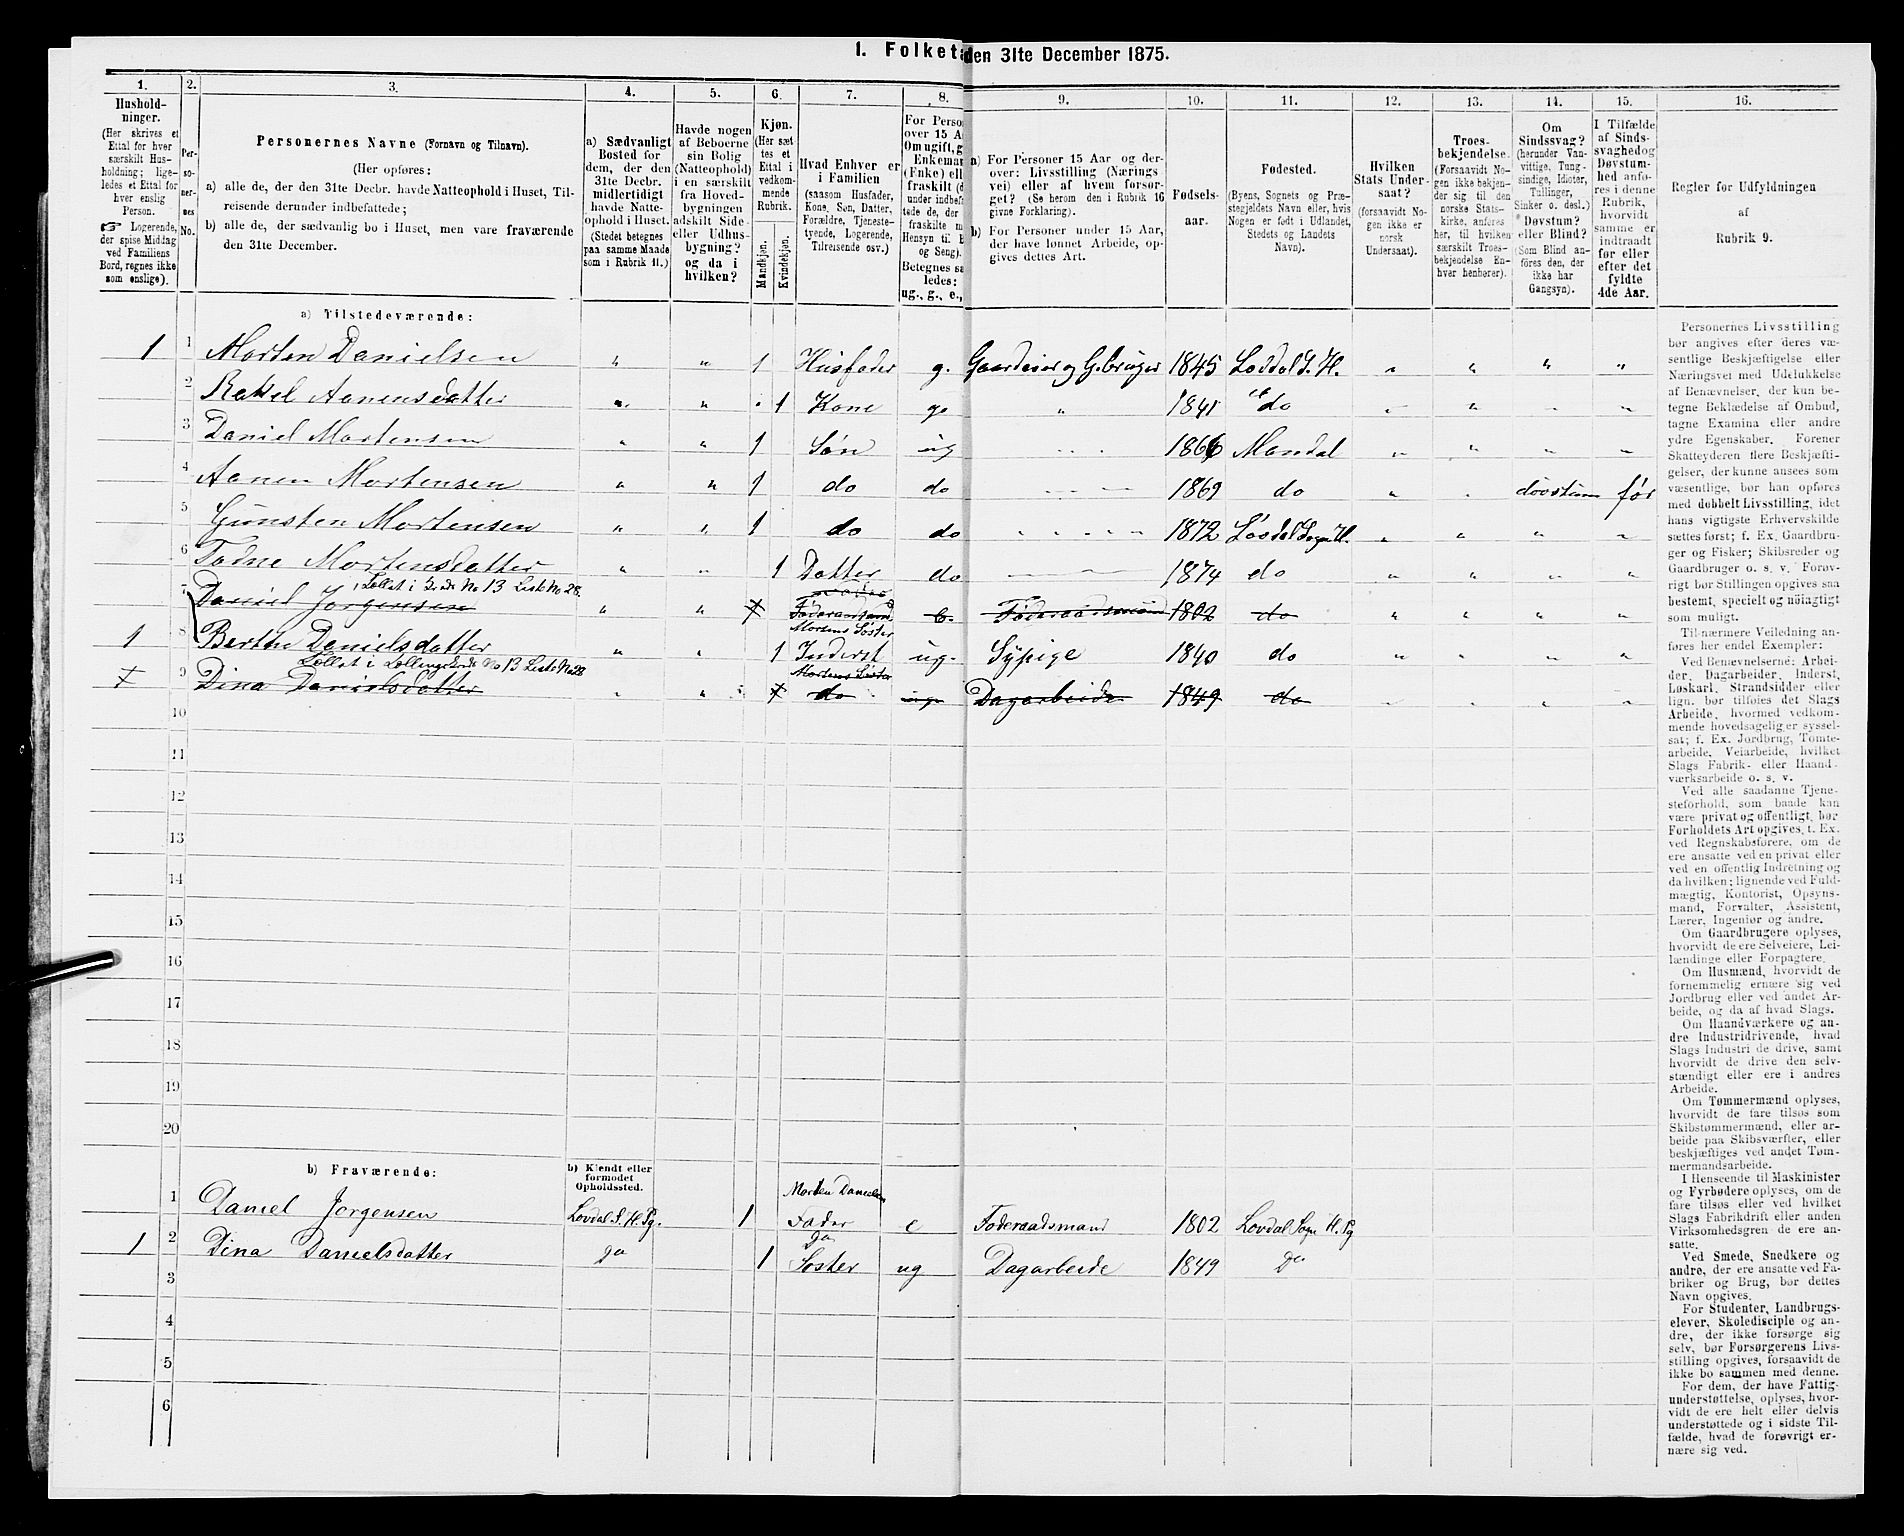 1. Folket den 31te December 1875.
1. 2. 3. 4. 5. 6. 7. 8. 9. 10. 11. 12. 13. 14. 15. 16.
Hushold-
ninger.
(Her skrives et
Ettal for hver
særskilt Hus-
holdning; lige-
ledes et Ettal for
hver enslig
Person.
☞ Logerende,
der spise Middag
ved Familiens
Bord, regnes ikke
som enslige).
Per-
so-
ner-
nes
No.
Personernes Navne (Fornavn og Tilnavn).
(Her opføres:
a) alle de, der den 31te Decbr. havde Natteophold i Huset, Til-
reisende derunder indbefattede;
b) alle de, der sædvanlig bo i Huset, men vare fraværende
den 31te December.
a) Sædvanligt
Bosted for
dem, der den
31te Decbr.
midlertidigt
havde Natte-
ophold i Huset.
(Stedet betegnes
paa samme Maade
som i Rubrik 11.)
Havde nogen
af Beboerne
sin Bolig
(Natteophold)
i en særskilt
fra Hoved-
bygningen
adskilt Side-
eller Udhus-
bygning?
og da i
hvilken?
Kjøn.
(Her sæt
tes et
Ettal i
vedkom-
mende
Rubrik.
Mandkjøn.
Kvindekjøn.
Hvad Enhver er
i Familien
(saasom Husfader,
Kone, Søn, Datter,
Forældre, Tjeneste-
tyende, Logerende,
Tilreisende osv.)
For Perso
over 15 A
Om ugift, g
Enkemar
(Enke) ell
fraskilt (d
under indbef
tede de, der
fraskilte m
Hensyn til B
og Seng).
Betegnes sa
ledes:
ug., g., e.,
a) For Personer 15 Aar og der-
over: Livsstilling (Nærings
vei) eller af hvem forsør-
get? (Se herom den i Rubrik 16
givne Forklaring).
b) For Personer under 15 Aar,
der have lønnet Arbeide, op-
gives dettes Art.
Fødsels-
aar.
Fødested.
(Byens, Sognets og Præ-
stegjeldets Navn eller, hvis
Nogen er født i Udlandet,
Stedets og Landets
Navn).
Hvilken
Stats Under-
saat?
(forsaavidt No-
gen ikke er
norsk
Undersaat).
Troes-
bekjendelse.
(Forsaavidt No-
gen ikke bekjen-
der sig til den
norske Stats-
kirke, anføres
her, til hvilken
særskilt Troes-
bekjendelse En-
hver henhører).
Om
Sindssvag?
(herunder Van-
vittige, Tung-
sindige, Idioter,
Tullinger,
Sinker o. desl.)
Døvstum?
eller Blind?
(Som Blind an-
føres den, der
ikke har
Gangsyn).
I Tilfælde
af Sinds-
svaghed og
Døvstum-
hed anfø-
res i denne
Rubrik,
hvorvidt
samme er
indtraadt
før eller
efter det
fyldte
4de Aar.
Regler før Udfyldningen
af
Rubrik 9.
a) Tilstedeværende:
1 1 Morten Danielsen " " 1 Husfader g. Gaardeier og G.bruger 1845 Lovdal S. H. " " " "
2 Rakel Aanensdatter " " 1 Kone g. " 1841 do " " " "
3 Daniel Mortensen " " 1 Søn ug 1866 Mandal " " " "
4 Aanen Mortensen " " 1 do do 1869 do " " døvstum før
5 Gunsten Mortensen " " 1 do do 1872 Løvdal Sogn H. " " " "
6 Todne Mortensdatter " " 1 Datter do 1874 do " " " "
Tællet i Kreds No 13 Liste No 28.
7 Daniel Jørgensen " " Føderaadsmand e. Føderaadsmand 1802 do " " " "
Mortens Søster
1 8 Berthe Danielsdatter " " 1 Inderst ug. Sypige 1840 do " " " "
Tællet i Tællingskreds No 13 Liste No 28
Mortens Søster
9 Dina Danielsdatter " " do ug. Dagarbeide 1849 do " " " "
10
11
12
13
14
15
16
17
18
19
20
b) Fraværende:
b) Kjendt eller
formodet
Opholdssted.
Morten Danielsen
1 Daniel Jørgensen Lovdal S. H. Pg. 1 Fader e Føderaadsmand 1802 Lovdal Sogn H. Pg
Do
1 2 Dina Danielsdatter Do 1 Søster ug Dagarbeide 1849 Do
3
4
5
6
Personernes Livsstilling
bør angives efter deres væ-
sentlige Beskjæftigelse eller
Næringsvei med Udelukkelse
af Benævnelser, der kun be-
tegne Beklædelse af Ombud,
tagne Examina eller andre
ydre Egenskaber. Forener
Skatteyderen flere Beskjæfti-
gelser, der kunne ansees som
væsentlige, bør han opføres
med dobbelt Livsstilling, idet
hans vigtigste Erhvervskilde
sættes først; f. Ex. Gaardbru-
ger og Fisker; Skibsreder og
Gaardbruger o. s. v. Forøv-
rigt bør Stillingen opgives saa
bestemt, specielt og nøiagtigt
som muligt.
Til nærmere Veiledning an-
føres her endel Exempler:
Ved Benævnelserne: Arbei-
der, Dagarbeider, Inderst,
Løskarl, Strandsidder eller
lign. bør tilføies det Slags
Arbeide, hvormed vedkom-
mende hovedsagelig er syssel-
sat; f. Ex. Jordbrug, Tømte-
arbeide, Veiarbeide, hvilket
Slags Fabrik- eller Haand-
værksarbeide o. s. v.
Ved alle saadanne Tjene-
steforhold, som baade kan
være privat og offentligt, bør
Forholdets Art opgives, t. Ex.
ved Regnskabsførere, om de
ere ansatte ved en privat eller
ved en offentlig Indretning og
da hvilken; lignende ved Fuld-
mægtig, Kontorist, Opsyns-
mand, Forvalter, Assistent,
Lærer, Ingeniør og andre.
Om Gaardbrugere oplyses,
hvorvidt de ere Selveiere, Lei-
lændinge eller Forpagtere.
Om Husmænd, hvorvidt de
fornemmelig ernære sig ved
Jordbrug eller ved andet Ar-
beide, og da af hvad Slags.
Om Haandværkere og an-
dre Industridrivende, hvad
Slags Industri de drive, samt
hvorvidt de drive den selv-
stændigt eller ere i andres
Arbeide.
Om Tømmermænd oplyses,
hvorvidt de fare tilsøs som
Skibstømmermænd, eller ar-
beide paa Skibsværfter, eller
beskjæftiges ved andet Tøm-
mermandsarbeide.
I Henseende til Maskinister
og Fyrbødere oplyses, om de
fare tilsøs eller ved hvilket
Slags Fabrikdrift eller anden
Virksomhedsgren de ere an-
satte.
Ved Smede, Snedkere og
andre, der ere ansatte ved Fa-
briker og Brug, bør dettes
Navn opgives.
For Studenter, Landbrugs-
elever, Skoledisciple og an-
dre, der ikke forsørge sig
selv, bør Forsørgerens Livs-
stilling opgives, forsaavidt de
ikke bo sammen med denne.
For dem, der have Fattig-
understøttelse, oplyses, hvor-
vidt de ere helt eller delvis
understøttede og i sidste Til-
fælde, hvad de forøvrigt er-
nære sig ved.